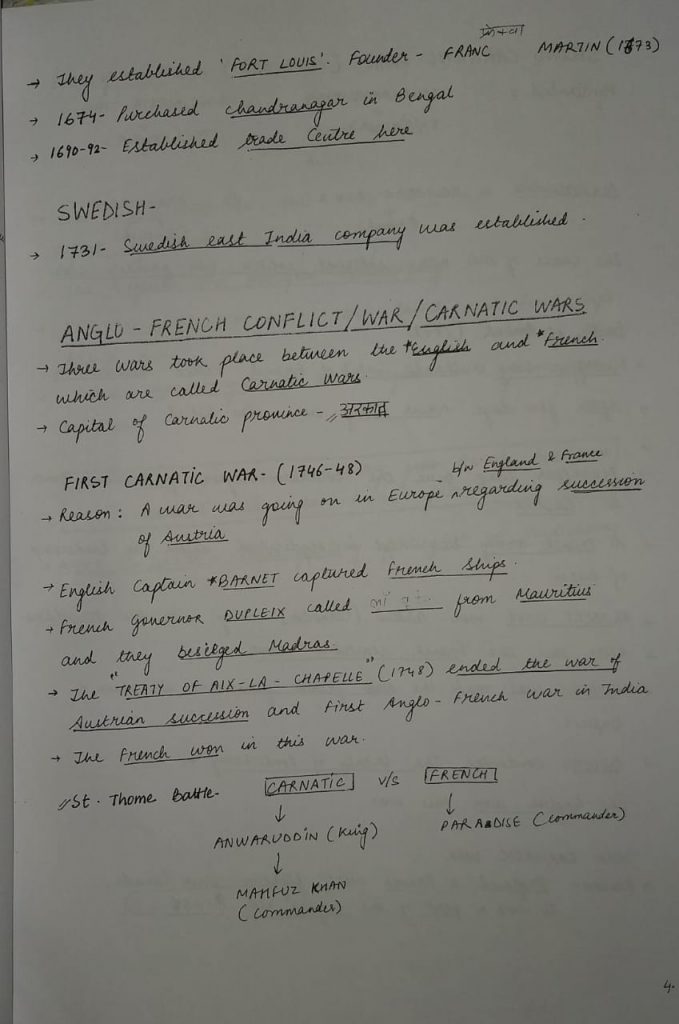 → They established 'FORT LOUIS'. Founder - FRANC MARTIN (1673)
→ 1674- Purchased chandranagar in Bengal
→ 1690-92- Established trade Centre here
SWEDISH-
→ 1731- Swedish east India company was established.
ANGLO - FRENCH CONFLICT/WAR/CARNATIC WARS
→ Three wars took place between the *English and *French.
which are called Carnatic Wars.
→ Capital of Carnatic province - अरकाट
FIRST CARNATIC WAR- (1746-48)
b/w England & France
→ Reason: A war was going on in Europe regarding succession
of Austria
→ English Captain *BARNET captured French Ships.
→ French governor DUPLEIX called from Mauritius
and they besieged Madras.
→ The "TREATY OF AIX-LA-CHAPELLE" (1748) ended the war of
Austrian succession and first Anglo-French war in India
→ The French won in this war.
// St. Thome Battle- CARNATIC v/s FRENCH
↓ ↓
ANWARUDDIN (King) PARADISE (commander)
↓
MAHFUZ KHAN
(commander)
4.